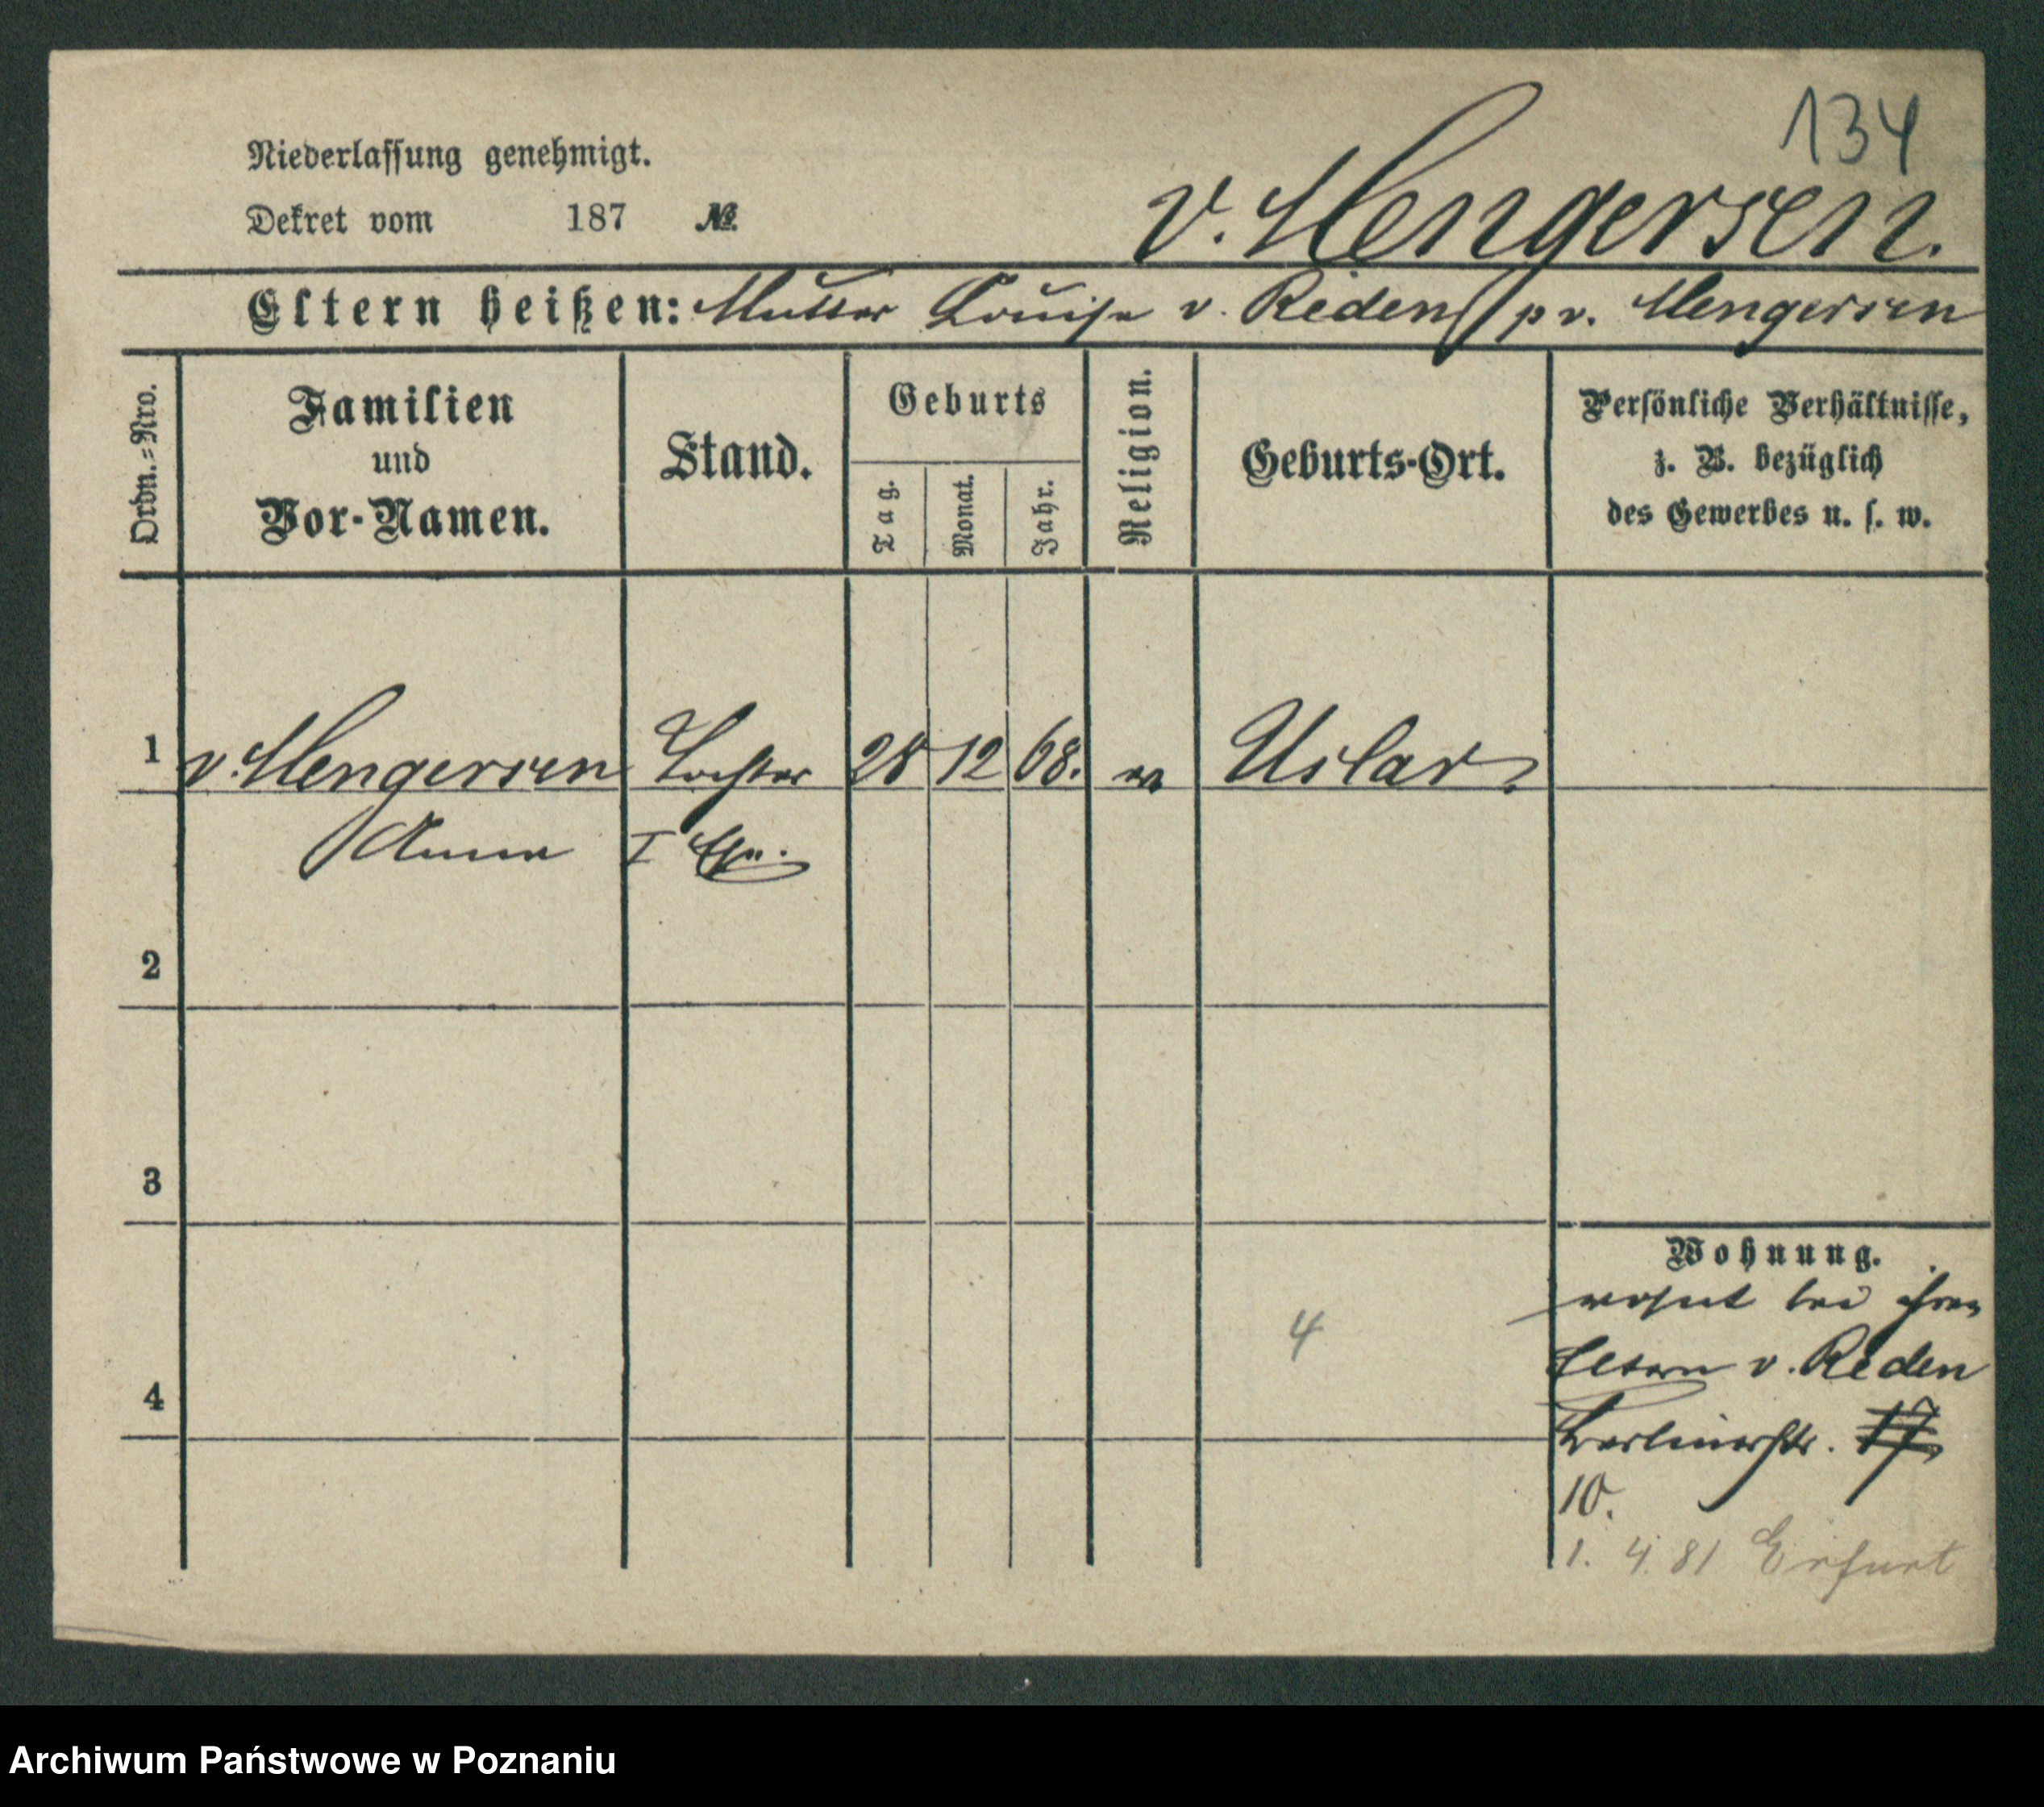 134
Niederlassung genehmigt.
v. Mengersen.
Dekret vom 187 №
Eltern heißen: Mutter Louise v. Reden v. Mengersen
Ordn.=Nro.
Familien
und
Vor-Namen.
Stand.
Geburts
Tag.
Monat.
Jahr.
Religion.
Geburts-Ort.
Persönliche Verhältnisse,
z. B. bezüglich
des Gewerbes u. s. w.
1 v. Mengersen Tochter 28 12 68. Uslar
Anna I Ehe.
2
3
Wohnung.
wohnt bei ihren
4
Eltern v. Reden
4
Berlinerstr. 17
10.
1. 4. 81 Erfurt
Archiwum Państwowe w Poznaniu